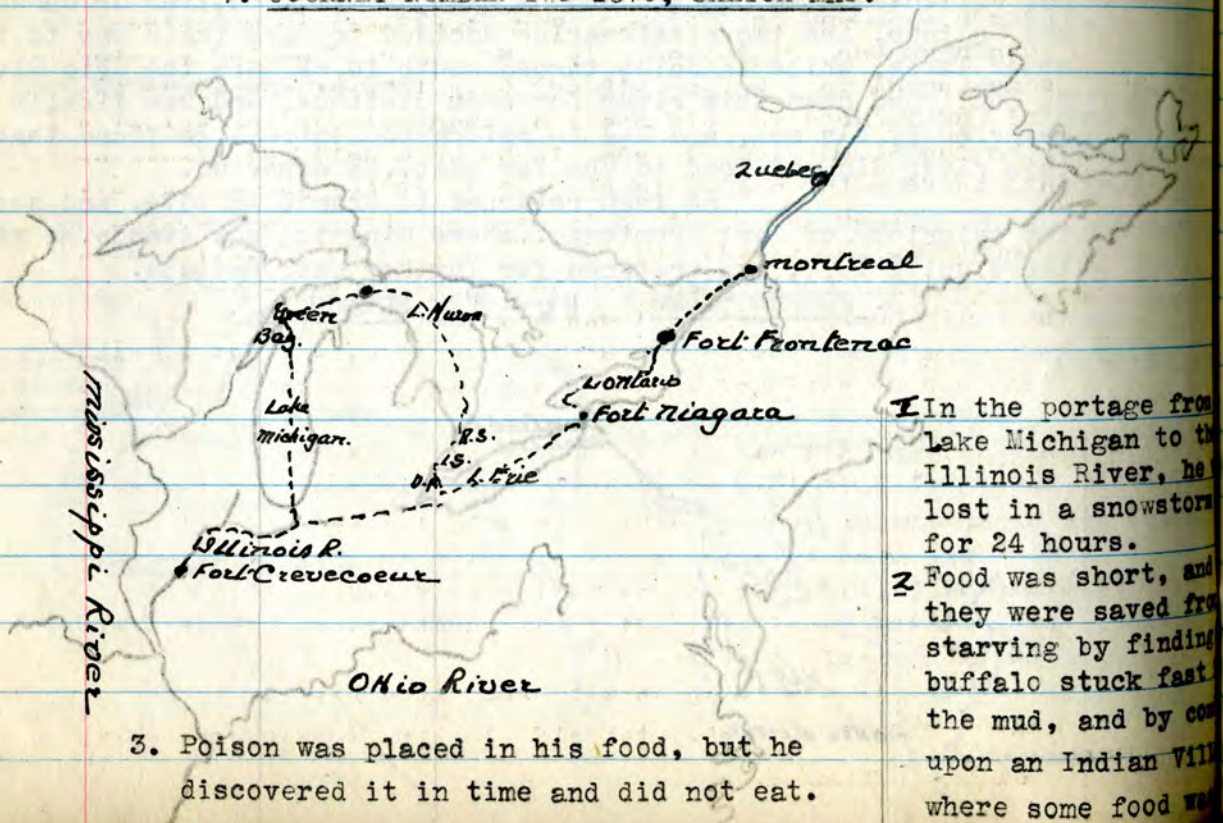 Quebec
montreal
Fort Frontenac
L. Huron
Green
Bay.
L ontario
Fort Niagara
Lake
michigan.
R.S.
L.S.
D.R.
L. Erie
Illinois R.
Fort Crevecoeur
mississippi River
OHio River
1 In the portage from
Lake Michigan to
Illinois River, he
lost in a snowstorm
for 24 hours.
2 Food was short, and
they were saved from
starving by finding
buffalo stuck fast
the mud, and by
upon an Indian
where some food
3. Poison was placed in his food, but he
discovered it in time and did not eat.